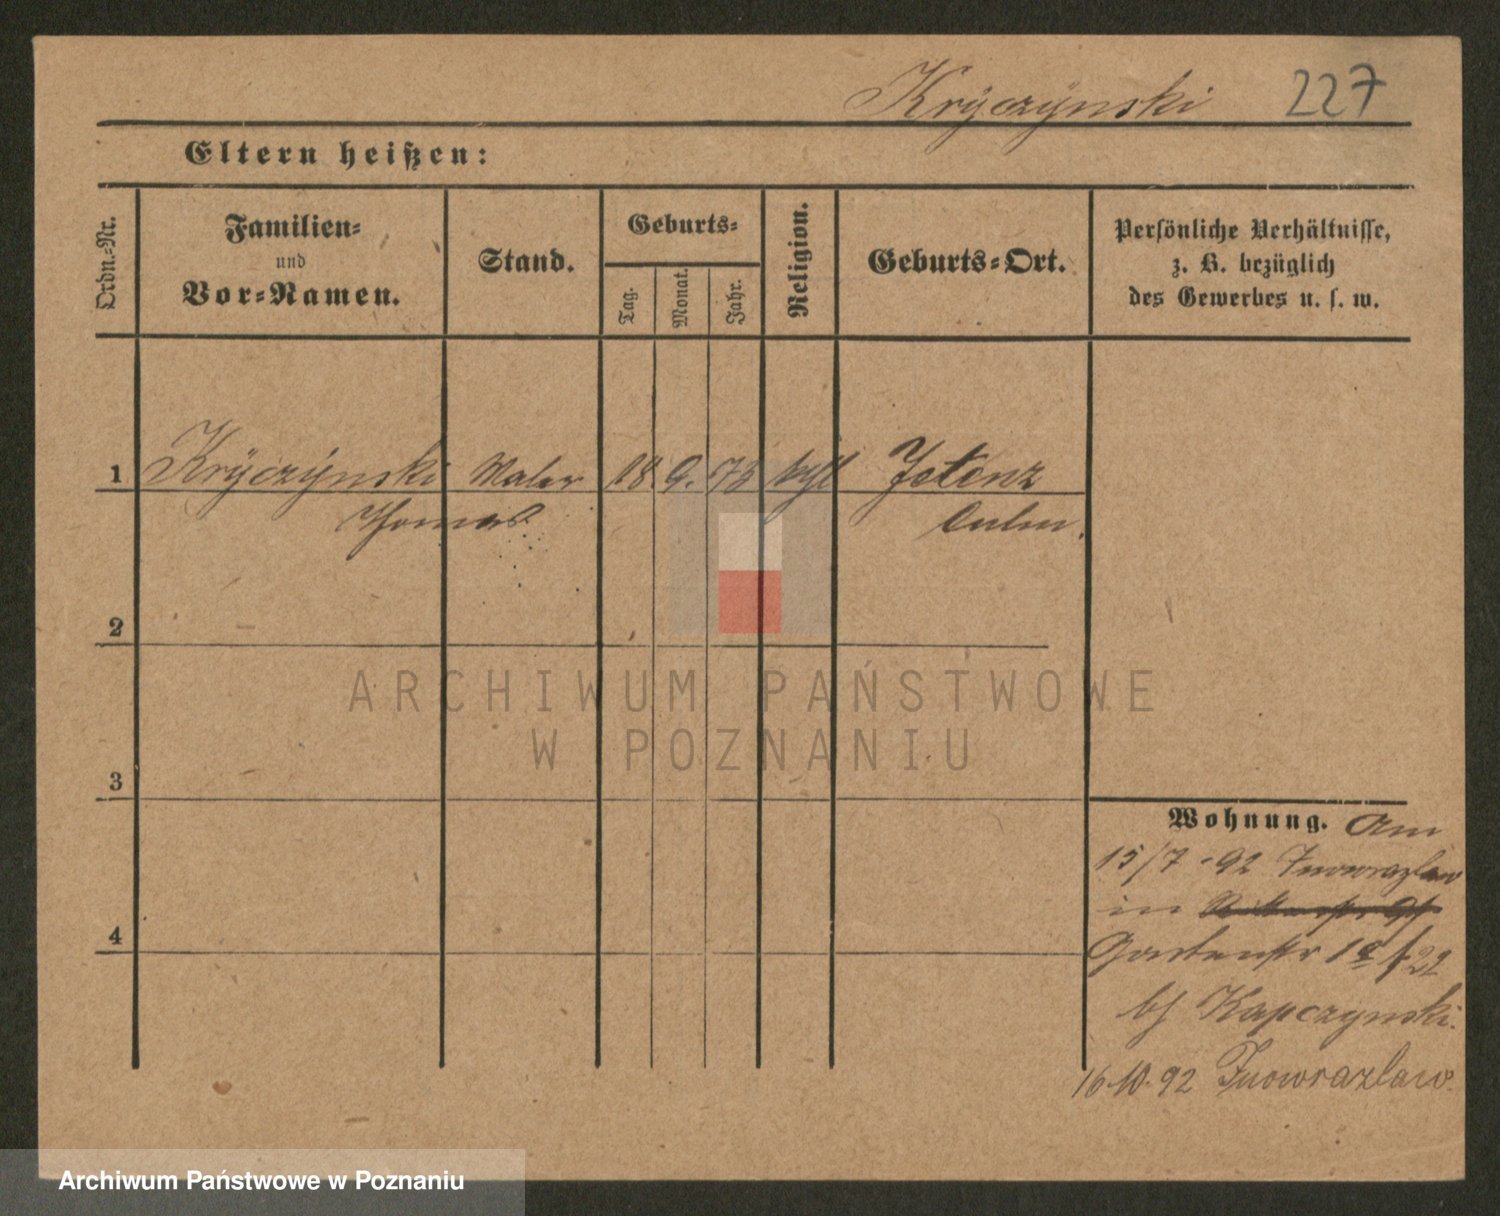 Krÿczÿnski 227
Eltern heißen:
Ordn.-Nr.
Familien-
und
Vor-Namen.
Stand.
Geburts-
Tag.
Monat.
Jahr.
Religion.
Geburts-Ort.
Persönliche Verhältnisse,
z. B. bezüglich
des Gewerbes u. s. w.
1 Krÿczÿnski Maler 18 9. 75 ktl
Thomas Culm.
2
ARCHIWUM PAŃSTWOWE
W POZNANIU
3
Wohnung. Am
15/7 -92 Inowrazlaw
in
4
Gartenstr
bj Kapczynski.
16.10.92 Inowrazlaw.
Archiwum Państwowe w Poznaniu